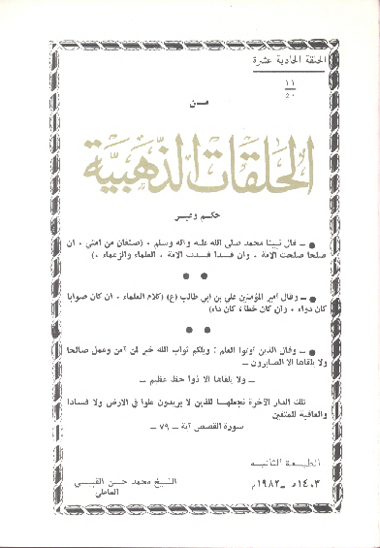 الحلقة الحادية عشرة
١١
٢٠
من
الحلقات الذهبية
حكم وعبر
● ـ قال نبينا محمد صلى الله عليه وآله وسلم ، (صنفان من امتي ، ان
صلحا صلحت الامة ، وان فسدا فسدت الامة ، العلماء والزعماء ،)
● ●
● ـ وقال أمير المؤمنين علي بن ابي طالب (ع) (كلام العلماء ، ان كان صوابا
كان دواء ، وان كان خطاء كان داء)
● ●
● ـ وقال الذين أوتوا العلم : ويلكم ثواب الله خير لمن آمن وعمل صالحا
ولا يلقاها الا الصابرون ـ
ـ ولا يلقاها الا ذوا حظ عظيم ـ
تلك الدار الآخرة نجعلها للذين لا يريدون علوا في الارض ولا فسادا
والعاقبة للمتقين
سورة القصص آية ـ ٧٩ ـ
الطبعة الثانية
١٤٠٣هـ ـ ١٩٨٢م
الشيخ محمد حسن القبيسي
العاملي